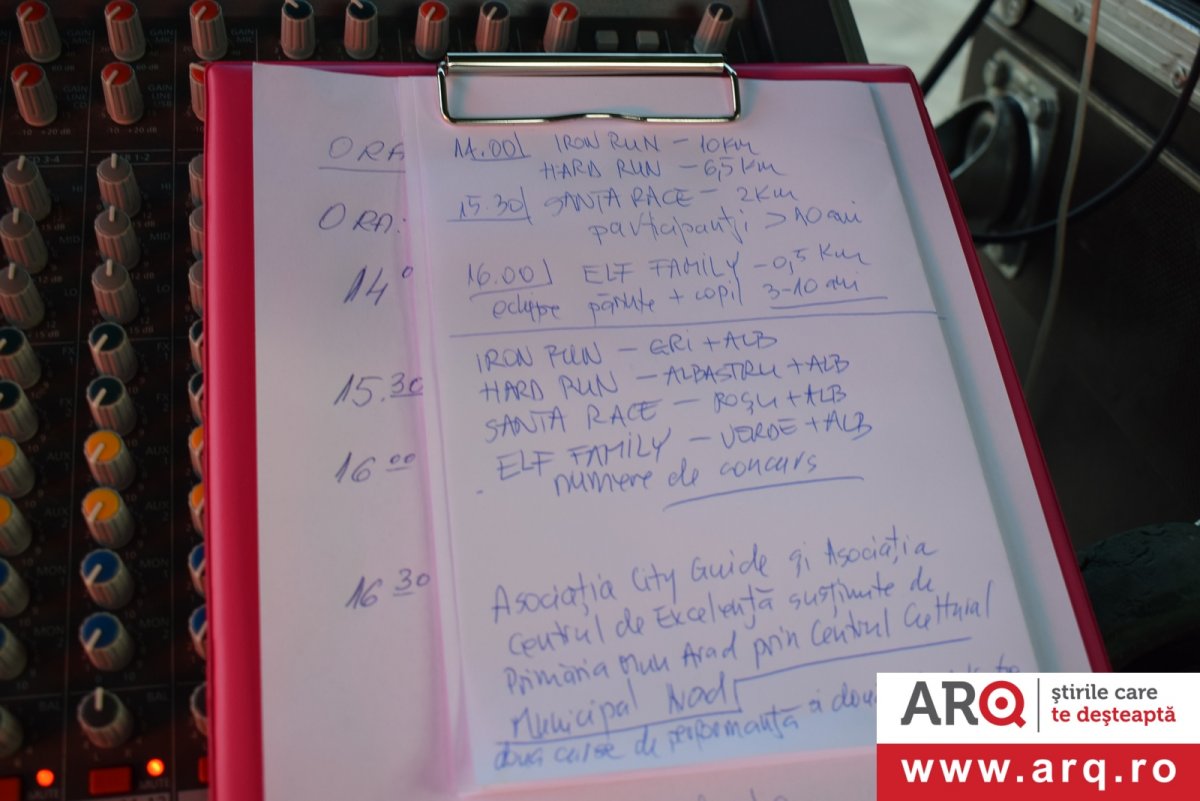 ORA
ORA:
14⁰
15.30
16 00
16 30
14.00 IRON RUN - 10 Km
HARD RUN - 6,5 Km
15.30 SANTA RACE - 2 Km
participanți > 10 ani
16.00 ELF FAMILY - 0,5 Km
echipe părinte + copil 3-10 ani
IRON RUN - GRI + ALB
HARD RUN - ALBASTRU + ALB
SANTA RACE - ROȘU + ALB
ELF FAMILY - VERDE + ALB
numere de concurs
Asociația City Guide și Asociația
Centrul de Excelență susținute de
Primăria Mun Arad prin Centrul Cultural
Municipal
două curse de performanță
GAIN
MIC
GAIN
LINE
-10 +20 dB
HI
MID
LO
FX
AUX
1
AUX
2
MON
1
MON
2
BAL
MUTE
ARQ știrile care
te deșteaptă
www.arq.ro